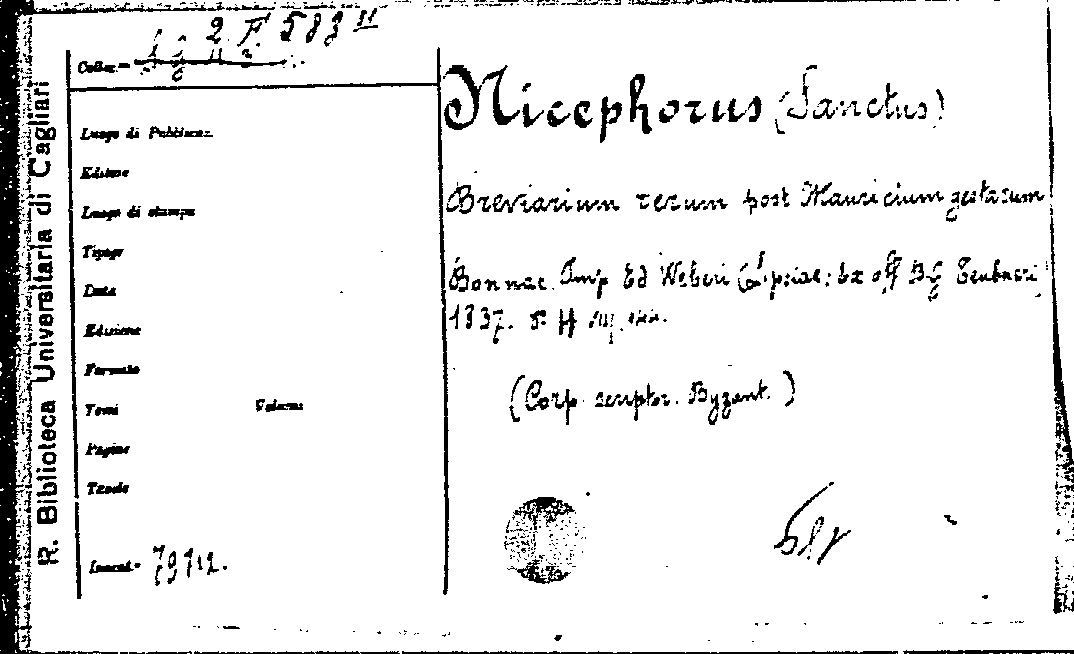 R. Biblioteca Universitaria di Cagliari
Colloc.=
2. F. 583 II
Luogo di Pubblicaz.
Editore
Luogo di stampa
Tipogr
Data
Edizione
Formato
Tomi Volume
Pagine
Tavole
Invent.= 79712.
Nicephorus (Sanctus)
Breviarium rerum post Mauricium gestarum
Bonnae. Imp Ed Weberi (Lipsiae: Ex off BG Teubneri
1837. 8º
(Corp. scriptor. Byzant.)